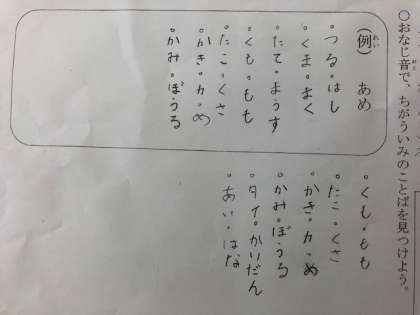 ○おなじ音で、ちがういみのことばを見つけよう。
(例) あめ
。つる。はし
。くま。まく
。たて。まうす
。くも。もも
。たこ。くさ
。かき。カ。め
。かみ。ぼうる
。くも。もも
。たこ。くさ
。かき。カ。め
。かみ。ぼうる
。タイ。かいだん
。あい。はな